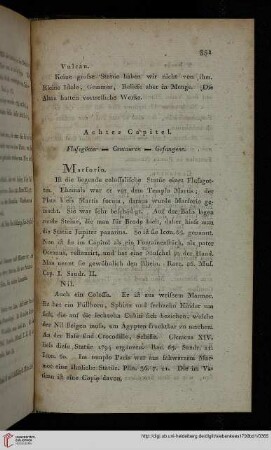 351
Vulcan.
Keine große Statüe haben wir nicht von ihm.
Kleine Idole, Gemmen, Reliefs aber in Menge. Die
Alten hatten vortrefliche Werke.
Achtes Capitel.
Flußgötter — Centauren — Gefangene.
Marforio.
Ist die liegende colossalische Statüe eines Flußgot-
tes. Ehemals war er vor dem Tempel Martis, der
Platz hieß Martis forum, daraus wurde Marforio ge-
macht. Sie war sehr beschädigt. Auf der Basis lagen
runde Steine, die man für Brody hielt, daher hieß man
die Statüe Jupiter panarius. So ist sie Icon. 65. genannt.
Nun ist sie im Capitol als ein Fontainenstück, als pater
Oceanus, restaurirt, und hat eine Muschel in der Hand.
Man nennt sie gewöhnlich den Rhein. Bon. 26. Mus.
Cap. I. Sandr. II.
Nil.
Auch ein Coloss. Er ist aus weissem Marmor.
Er hat ein Füllhorn, Sphinx und sechzehn Kinder um
sich, die auf die sechzehn Cubitus sich beziehen, welche
der Nil steigen muß, um Ägypten fruchtbar zu machen.
An der Basis sind Crocodille, Schiffe. Clemens XIV.
ließ diese Statüe 1774 ergänzen. Bar. 65. Sandr. II.
Icon. 60. Im templo Pacis war aus schwarzem Mar-
mor eine ähnliche Statüe. Plin. 36. 7. 11. Die im Va-
tican ist eine Copie davon.
UNIVERSITÄTS-
BIBLIOTHEK
HEIDELBERG